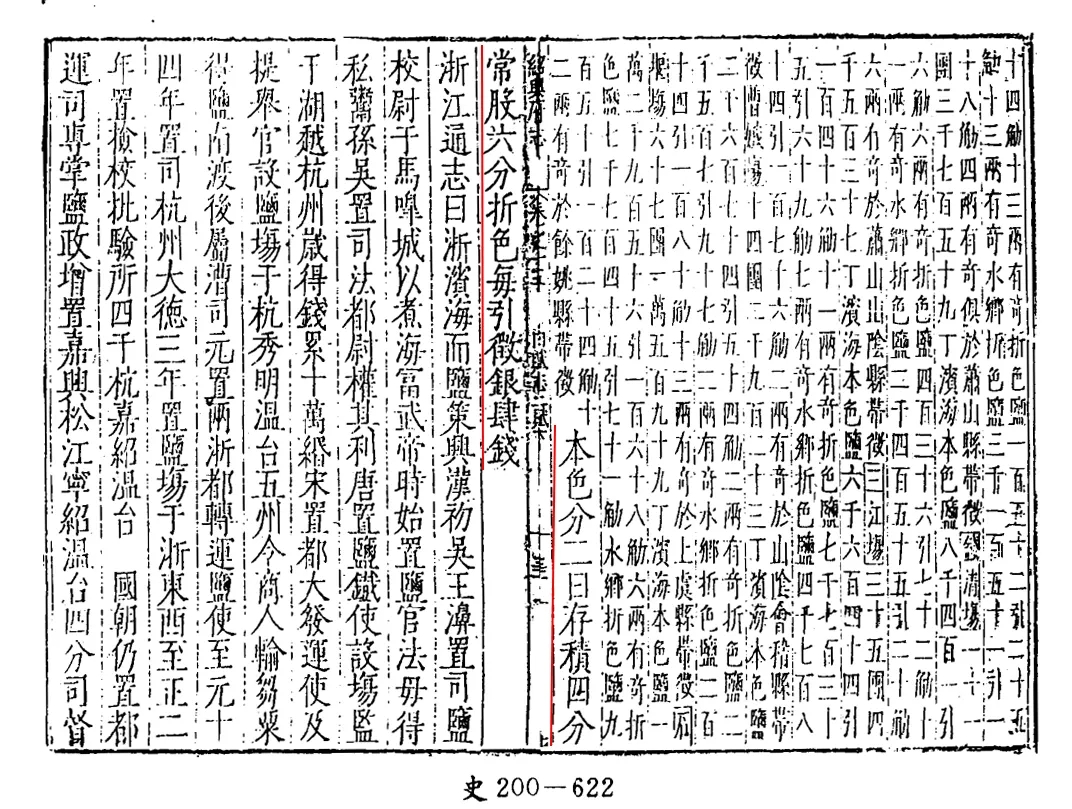 十四觔十三兩有奇折色鹽一百五十二引二十五
觔十三兩有奇水鄉折色鹽三千一百五十一引一
十八觔四兩有奇俱於蕭山縣帶徵錢清場一十一
團三千七百五十九丁濱海本色鹽八千四百一引
六觔六兩有奇折色鹽二百三十六引七十二觔十
一兩有奇水鄉折色鹽二千四百五十五引二十觔
六兩有奇於蕭山山陰縣帶徵三江場三十五團四
千五百三十七丁濱海本色鹽六千六百四十四引
一百四十六觔十一兩有奇折色鹽七千七百三十
五引六十九觔七兩有奇水鄉折色鹽四千七百八
十四引一百七十六觔二兩有奇於山陰會稽縣帶
徵曹娥場十四團二千九百二十三丁濱海本色鹽
二千六百七十四引五十四觔二兩有奇折色鹽二
千五百七引九十七觔二兩有奇水鄉折色鹽二百
十四引一百八十觔十三兩有奇於上虞縣帶徵石
堰場六十七團一萬五百九十九丁濱海本色鹽一
萬二千九百五十六引一百六十八觔六兩有奇折
色鹽七千七百四十五引七十一觔水鄉折色鹽九
百五十引一百二十四觔十
二兩有奇於餘姚縣帶徵
本色分二曰存積四分
紹興府志
常股六分折色每引徵銀肆錢
浙江通志曰浙濱海而鹽策興漢初吳王濞置司鹽
校尉于馬嘷城以煮海富武帝時始置鹽官法毋得
私鬻孫吳置司法都尉權其利唐置鹽鐵使設場監
于湖越杭州歲得錢累十萬緡宋置都大發運使及
提舉官設鹽場于杭秀明溫台五州令商人輸芻粟
得鹽南渡後屬漕司元置兩浙都轉運鹽使至元十
四年置司杭州大德三年置鹽場于浙東西至正二
年置檢校批驗所四于杭嘉紹溫台 國朝仍置都
運司專掌鹽政增置嘉興松江寧紹溫台四分司督
史 200—622